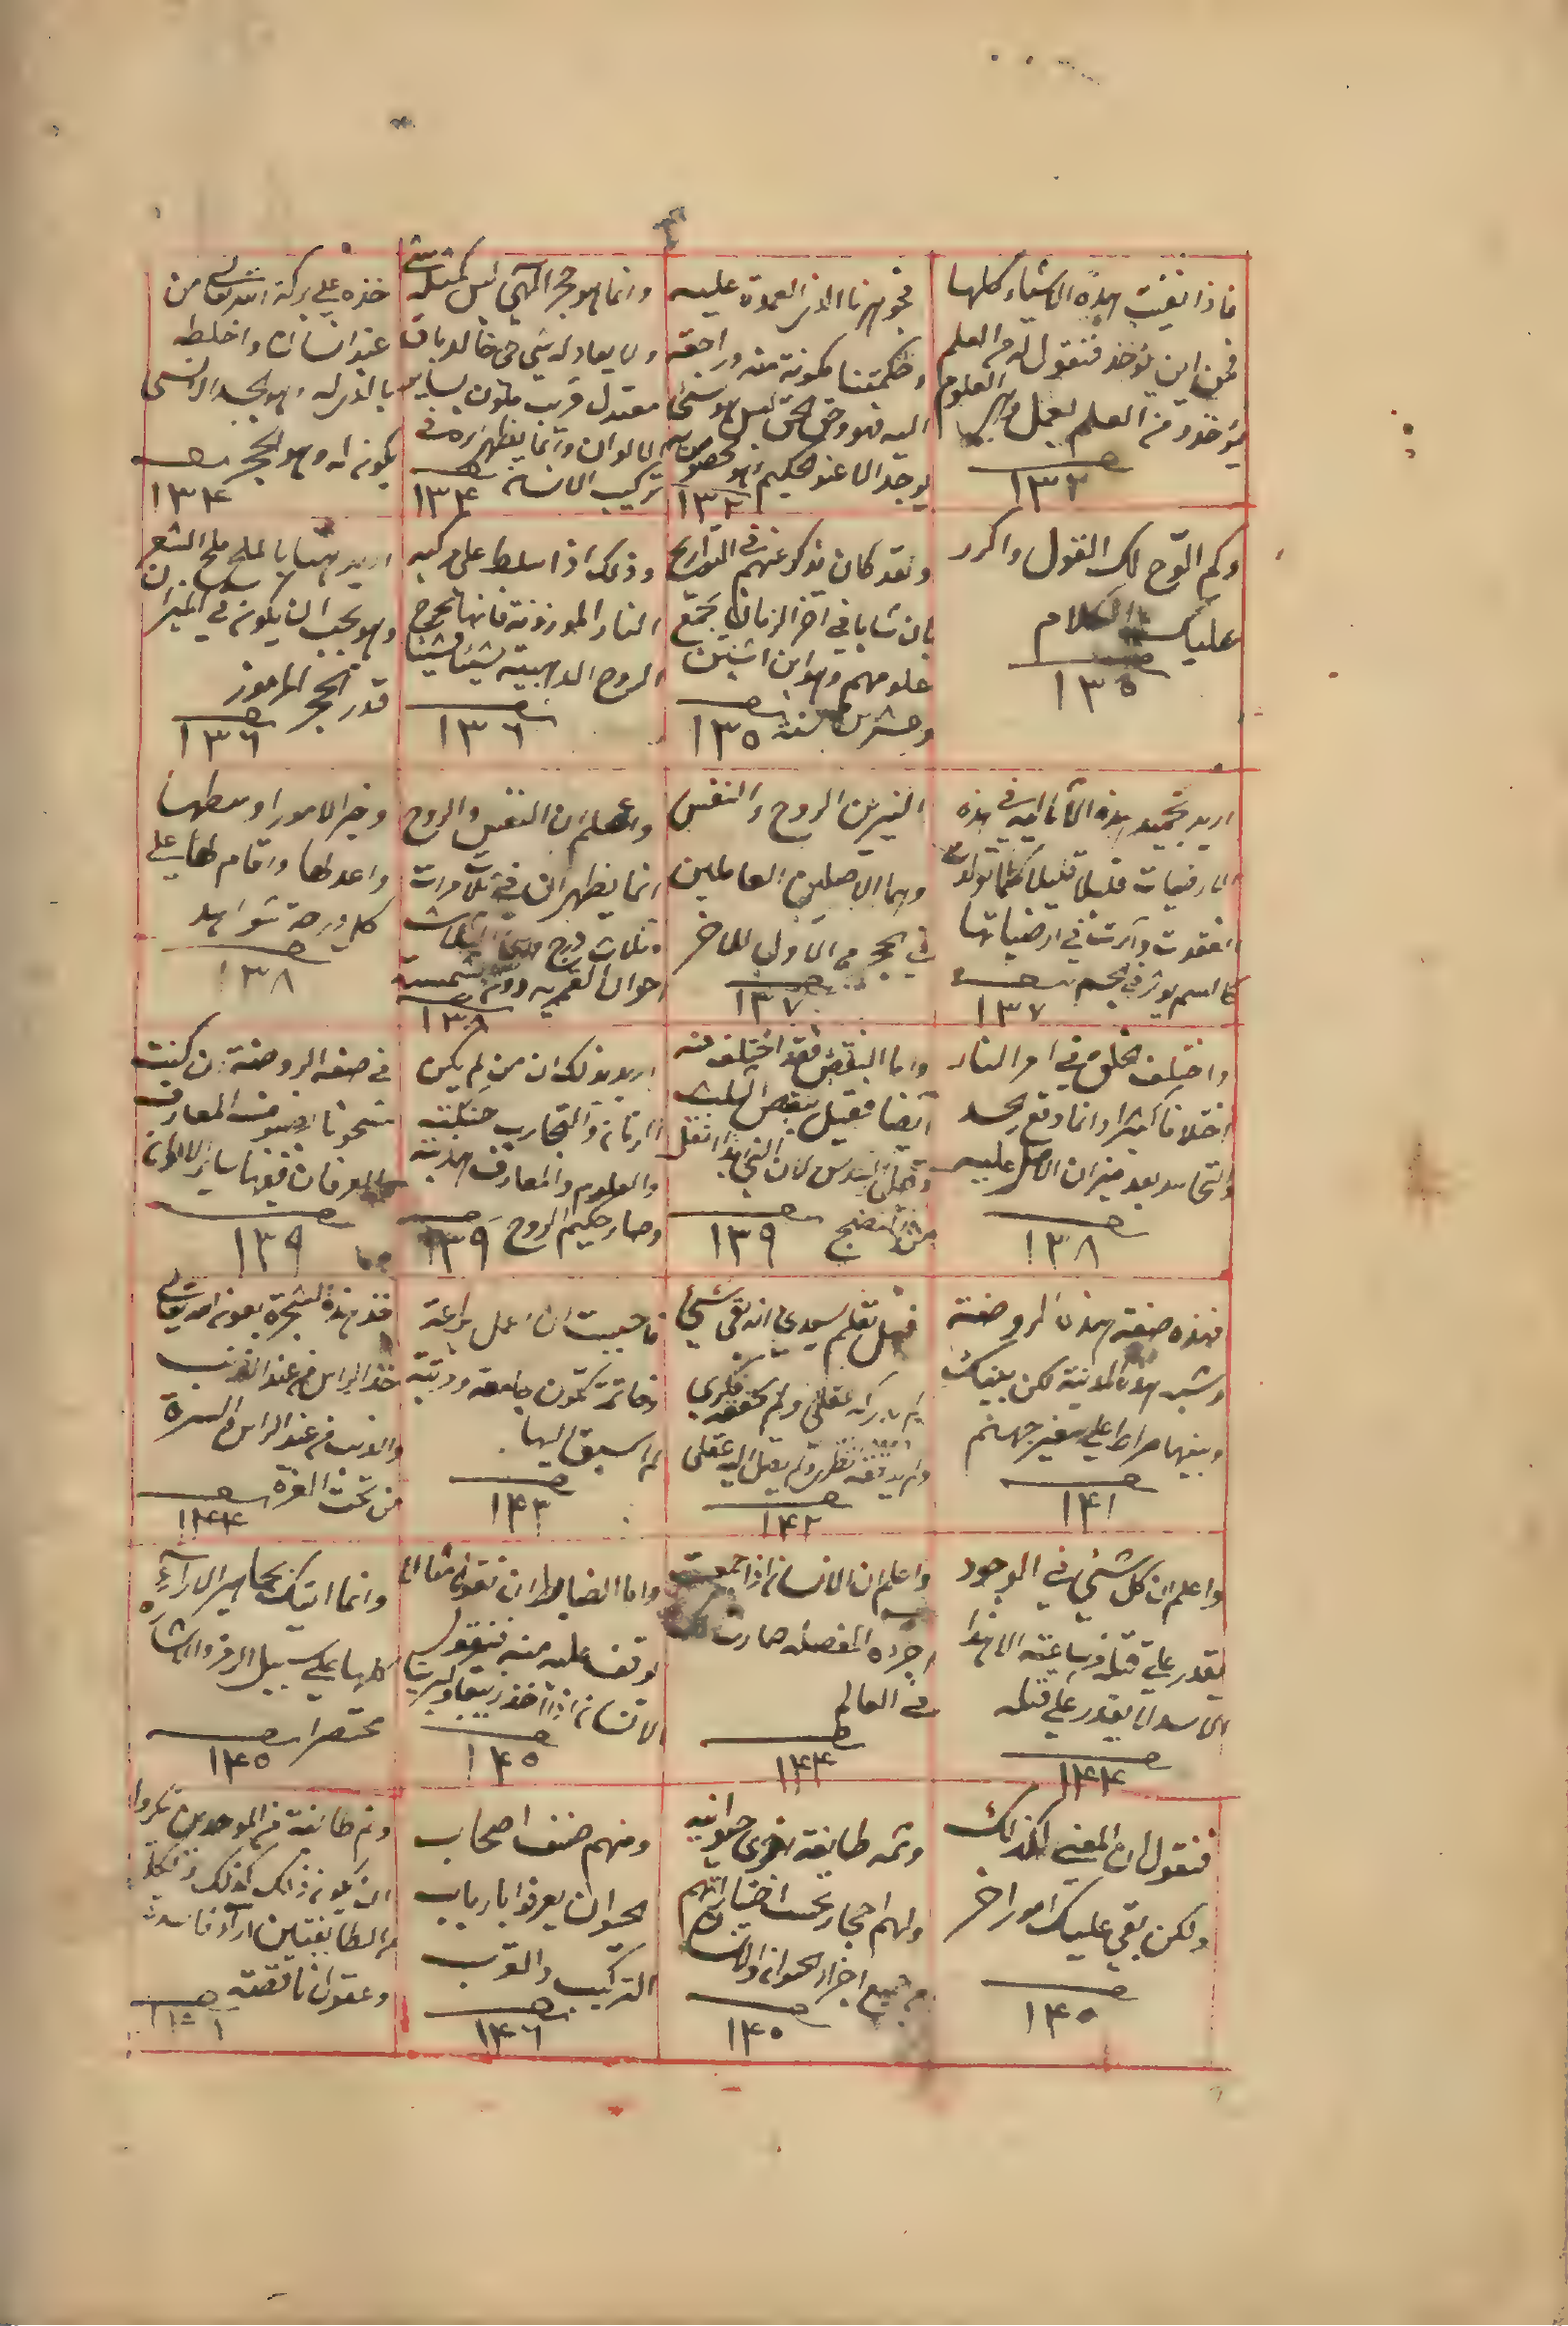 فاذا نفيت هذه الاشياء كلها
فمن اين يؤخذ فنقول له من العلم
يؤخذ ومن العلم يعمل وهى العلوم
صـ ١٣٢
فجوهرنا الذى العمدة عليه
وحكمتنا مكونة منه وراجعة
اليه فهو وحق الحق ليس هو شئ
يوجد الا عند الحكيم
صـ ١٣٢
وانما هو حجر الهى ليس كمثله شئ
ولا يعادله شئ حى خالد باق
معتدل قريب ملون بساير
الالوان وانما يظهر اثره فى
تركيب الانسان صـ ١٣٤
خذه على بركة الله تعالى من
عند انسان واخلطه
بالذى له وهو الجسد الانسى
يكون له وهو الحجر صـ
١٣٤
وكم الوّح لك القول واكرر
عليك الكلام
صـ ١٣٥
ولقد كان يذكر عنهم فى التواريخ
بان شابا فى اخر الزمان يجمع
علومهم وهو ابن اثنين
وعشرين سنة صـ ١٣٥
وذلك اذا سلط على مركبه
النار الموزونة فانها تخرج
الروح الذهبية شيئا فشيئا
صـ ١٣٦
اريد هنا بالملح ملح الشعر
وهو يجب ان يكون فى الميزان
قدر الحجر المرموز
صـ ١٣٦
اريد تجميد هذه الامائية فى هذه
الارضيات قليلا قليلا كلما تولدت
انعقدت واثرت فى ارضياتها
كالسم يوثر فى الجسم صـ
١٣٧
النيرين الروح والنفس
وهما الاصلين العاملين
فى الحجر من الاول للاخر
صـ ١٣٧
واعلم ان النفس والروح
انما يظهران فى ثلاث مرات
وثلاث درج
صـ ١٣٨
وخير الامور اوسطها
واعدلها واقام لها على
كل درجة شواهد
صـ ١٣٨
واختلف الخلق فى امر النار
اختلافا كثيرا وانما وقع الحسد
والتحاسد بعد ميزان الاصل عليه
صـ ١٣٨
واما النقص فقد اختلف فيه
ايضا فقيل ينقص الثلث
صـ ١٣٩
اريد بذلك ان من لم يكن
الزمان والتجارب حنكته
والعلوم والمعارف هذبته
وصار حكيم الروح صـ ١٣٩
فى صفة الروضة ان كنت
مشحونا بفنون المعارف
والعرفان ففيها ساير الالوان
صـ ١٣٩
فهذه صفة هذه الروضة
وشبه هذه المدينة لكن بينك
وبينها صراط على شفير جهنم
صـ ١٤١
فهل تعلم سيدى انه بقى شئ
لم يدركه عقلى ولم يحققه فكرى
ولم يدققه نظرى ولم يصل اليه عقلى
صـ ١٤٢
فاحببت ان اعمل براعة
وخاتمة تكون جامعة ورتبة
لم اسبق اليها
صـ ١٤٣
خذ هذه الشجرة بعون الله تعالى
خذ الراس من عند الذنب
والذنب من عند الراس والسرة
من تحت الغرة صـ
١٤٤
واعلم ان كل شئ فى الوجود
يقدر على قتله فى ساعته الا هذا
الاسد لا يقدر على قتله
صـ ١٤٤
واعلم ان الانسان اذا جمعت
اجزاه المفصله صارت
فى العالم
صـ ١٤٤
واما الضابط ان نقول مثالا
توقف عليه منه فنقول
الانسان اذا اخذ زيبقا وكبريتا
صـ ١٤٥
وانما اتيتك بجماهير الاراء
كلها على سبيل الرمز والاشارة
مختصرا صـ
١٤٥
فنقول ان المعنى كذلك
ولكن بقى عليك امور اخر
صـ ١٤٥
وثمه طايفة اخرى حيوانيه
ولهم احجار تحت اختياراتهم
من جميع اجزاء الحيوان والانسان
صـ ١٤٥
ومنهم صنف اصحاب
الحيوان يعرفوا بارباب
التركيب والقرب
صـ ١٤٦
وثم طائفة من الموحدين نكروا
ان يكون ذلك كذلك
من الطايفتين اراء فاسدة
وعقول ناقصة
صـ